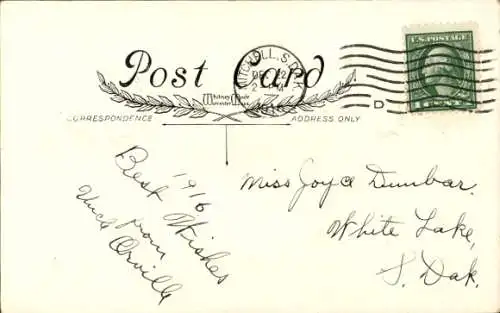 Post Card
MITCHELL, S. DAK.
DEC 22
U.S. POSTAGE
1 CENT 1
D
Whitney Made
Worcester Mass
CORRESPONDENCE
ADDRESS ONLY
1916
Best Wishes
from
Uncle Orville
Miss Joyce Dunbar.
White Lake,
S. Dak.